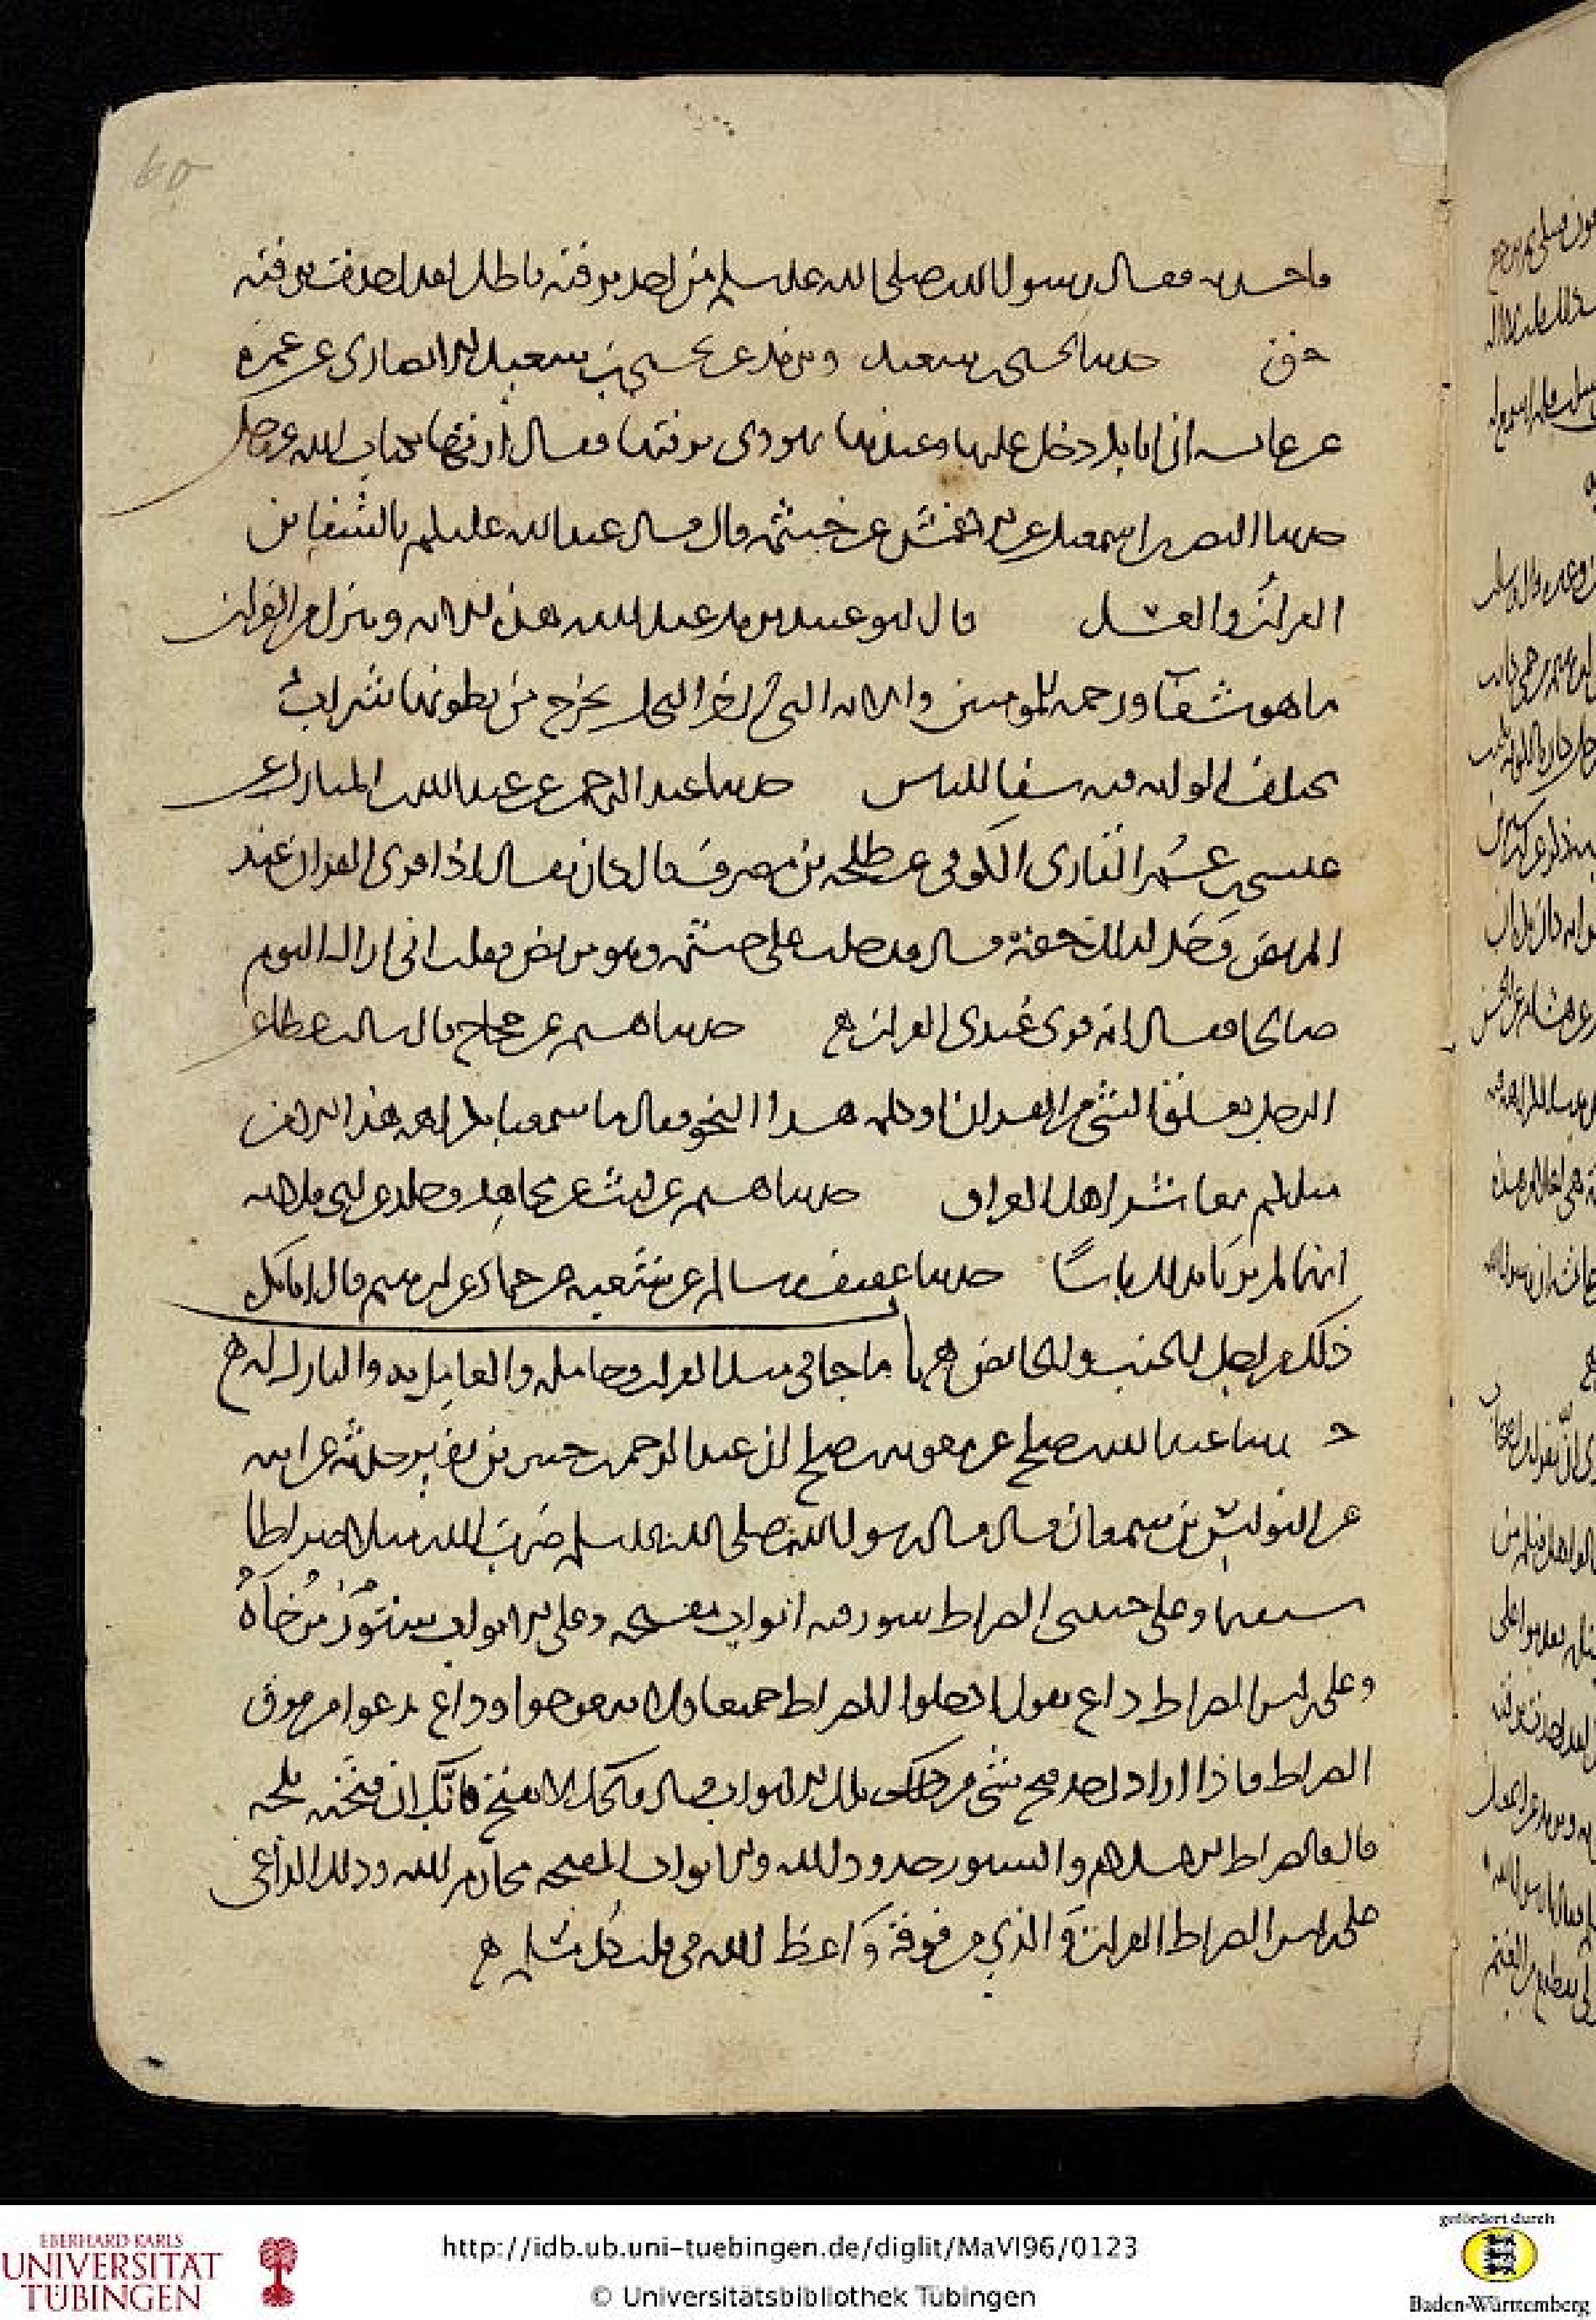 60
فاخبرته فقال رسول الله صلى الله عليه وسلم من اخذ برقية باطل لقد اخذت برقية
حق حدثنا يحيى بن سعيد ويزيد عن يحيى بن سعيد الانصاري عن عمرة
عن عائشة ان ابا بكر دخل عليها وعندها يهودية ترقيها فقال ارقيها بكتاب الله عز وجل
حدثنا ابن اسمعيل عن الاعمش عن خيثمة قال قال عبد الله عليكم بالشفاين
القران والعسل قال ابو عبيد يريد عبد الله هذه الاية وننزل من القران
ما هو شفآ ورحمة للمومنين والاية التي في النحل يخرج من بطونها شراب
مختلف الوانه فيه شفا للناس حدثنا عبد الرحمن عن عبد الله بن المبارك عن
عيسى بن عمر القارى الكوفي عن طلحة بن مصرف قال كان يقال اذا قرى القران عند
المريض وجد لذلك خفة قال فدخلت على خيثمة وهو مريض فقلت اني اراك اليوم
صالحا فقال انه قرى عندي القران ه حدثنا هشيم عن حجاج قال سالت عطا عن
الرجل يعلق الشي من القران او كلمة هذا النحو فقال ما سمعنا بكراهيه هذا الا من
قبلكم معاشر اهل العراق حدثنا هشيم عن ليث عن مجاهد وخالد عن ابي قلابة
انهما لم يريا بذلك باسا حدثنا عفيف بن سالم عن شعبة عن حماد عن ابرهيم قال انما كره
ذلك من اجل الجنب والحائض ه باب ما جا في مثل القران وحامله والعامل به والتارك له ه
حدثنا عبد الله بن صلح عن معوية بن صلح ان عبد الرحمن بن جبير بن نفير حدثه عن ابيه
عن النواس بن سمعان قال قال رسول الله صلى الله عليه وسلم ضرب الله مثلا صراطا
مستقيما وعلى جنبتي الصراط سور فيه ابواب مفتحة وعلى الابواب ستور مرخاة
وعلى راس الصراط داع يقول ادخلوا الصراط جميعا ولا تعوجوا وداع يدعوا من فوق
الصراط فاذا اراد احد فتح شي من تلك الابواب قال ويحك لا تفتحه فانك ان فتحته تلجه
قال فالصراط الاسلام والستور حدود الله والابواب المفتحة محارم الله وذلك الداعي
على راس الصراط القران والذي من فوقه واعظ الله في قلب كل مسلم ه
EBERHARD KARLS
UNIVERSITÄT
TÜBINGEN
http://idb.ub.uni-tuebingen.de/diglit/MaVI96/0123
© Universitätsbibliothek Tübingen
gefördert durch
Baden-Württemberg